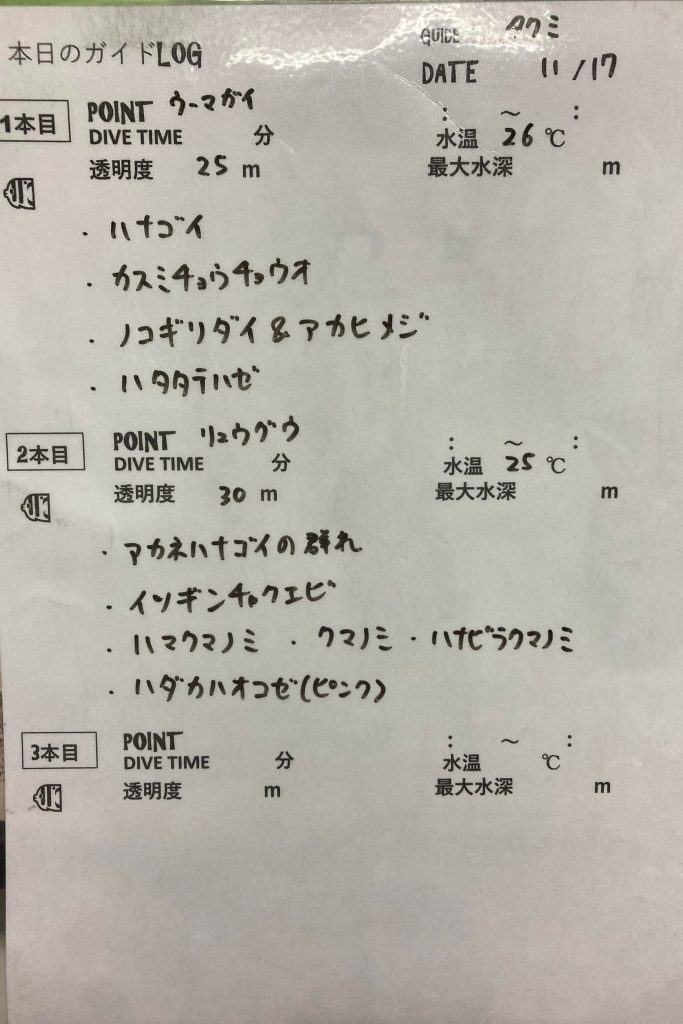 本日のガイドLOG
GUIDE タクミ
DATE 11/17
1本目 POINT ウーマガイ : ～ :
DIVE TIME 分 水温 26 ℃
透明度 25 m 最大水深 m
・ハナゴイ
・カスミチョウチョウオ
・ノコギリダイ&アカヒメジ
・ハタタテハゼ
2本目 POINT リュウグウ : ～ :
DIVE TIME 分 水温 25 ℃
透明度 30 m 最大水深 m
・アカネハナゴイの群れ
・イソギンチャクエビ
・ハマクマノミ ・クマノミ・ハナビラクマノミ
・ハダカハオコゼ(ピンク)
3本目 POINT : ～ :
DIVE TIME 分 水温 ℃
透明度 m 最大水深 m